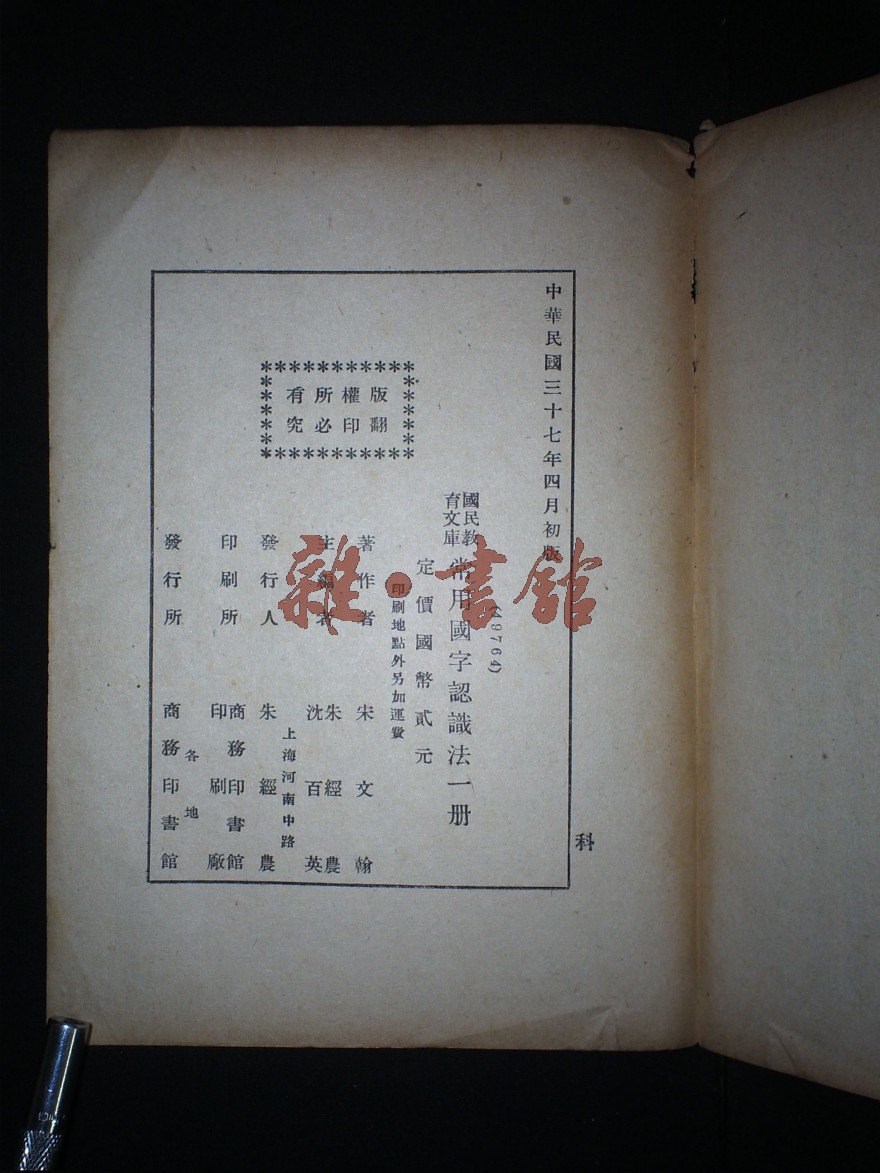 中華民國三十七年四月初版
(19764)
國民教育文庫
常用國字認識法一册
定價國幣貳元
印刷地點外另加運費
版權所有
翻印必究
著作者 宋文翰
主編者 朱經農 沈百英
上海河南中路
發行人 朱經農
印刷所 商務印書館印刷廠
各地
發行所 商務印書館
科
雜·書館